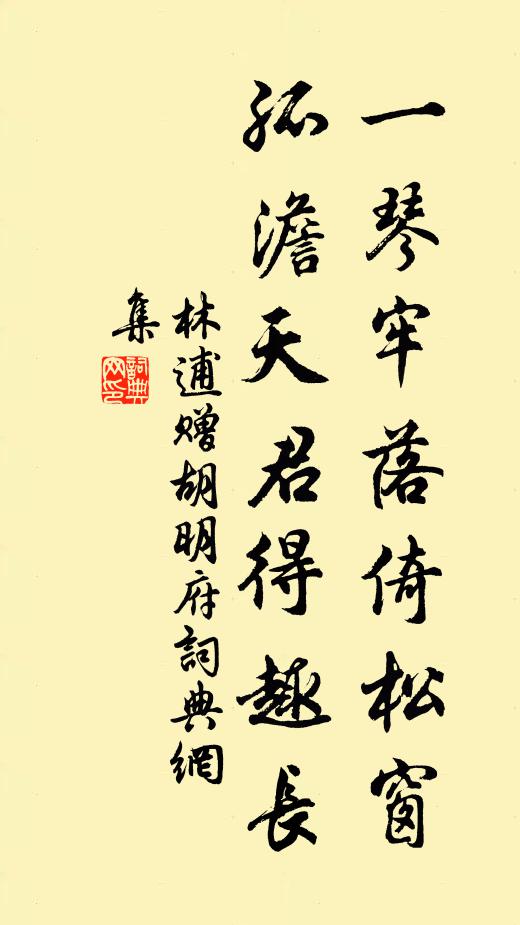 一琴牢落倚松窗
孤澹天君得趣長
林逋贈胡明府詞典網
集
詞典
网印